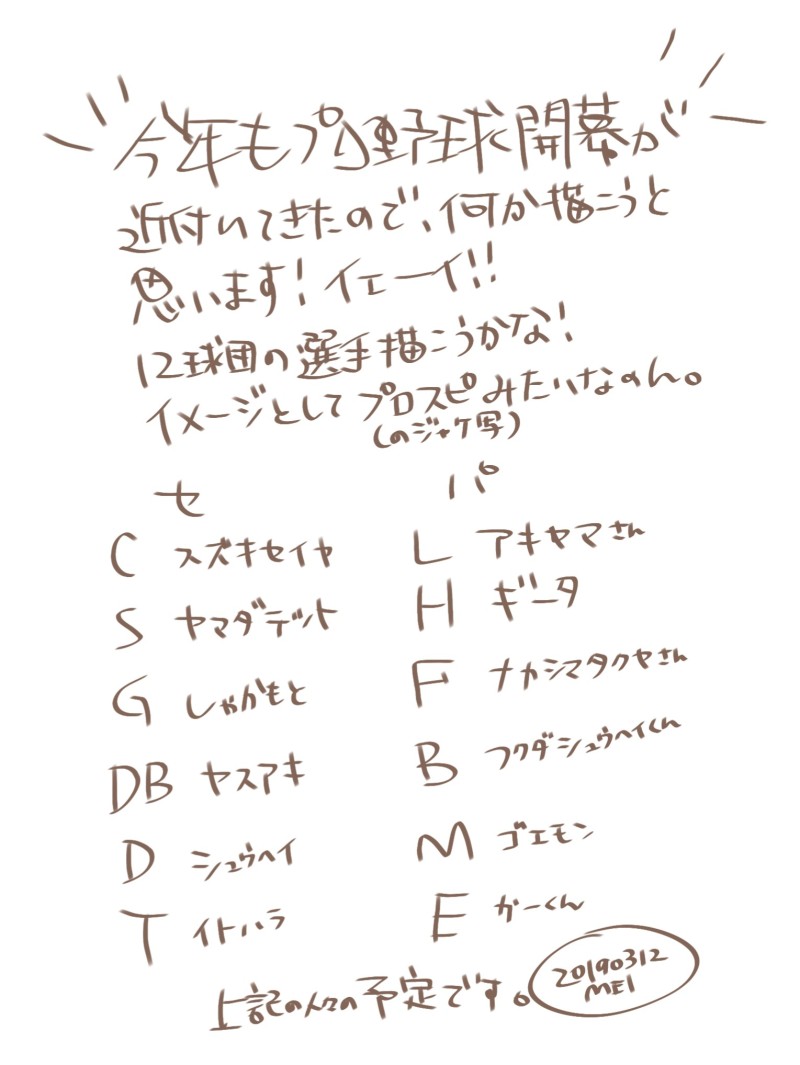 今年もプロ野球開幕が
近付いてきたので、何か描こうと
思います！イェーイ!!
12球団の選手描こうかな！
イメージとしてプロスピみたいなもん。
(のジャケ写)
セ パ
C スズキセイヤ L アキヤマさん
S ヤマダテット H ギータ
G しゃかもと F ナカシマタクヤさん
DB ヤスアキ B フクダシュウヘイくん
D シュウヘイ M ゴエモン
T イトハラ E かーくん
上記の人々の予定です。
20190312
MEI